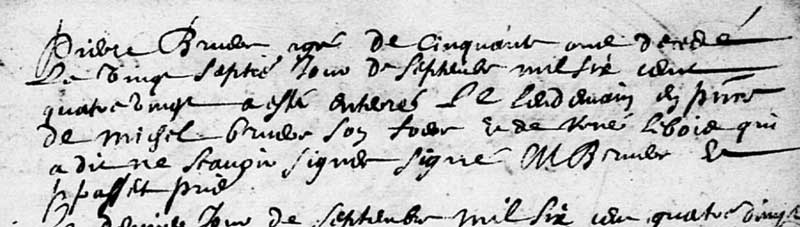 Pierre Bruder agé de Cinquante onse decedé
Le vingt septie Jour de Septembre mil six cent
quatre vingt a esté enteré Le lendemain en pnce
de Michel bruder son frere et de René qui
a dit ne scavoir signer signé M Bruder et
p
Le dernier Jour de septembre mil six cen quatre vingt